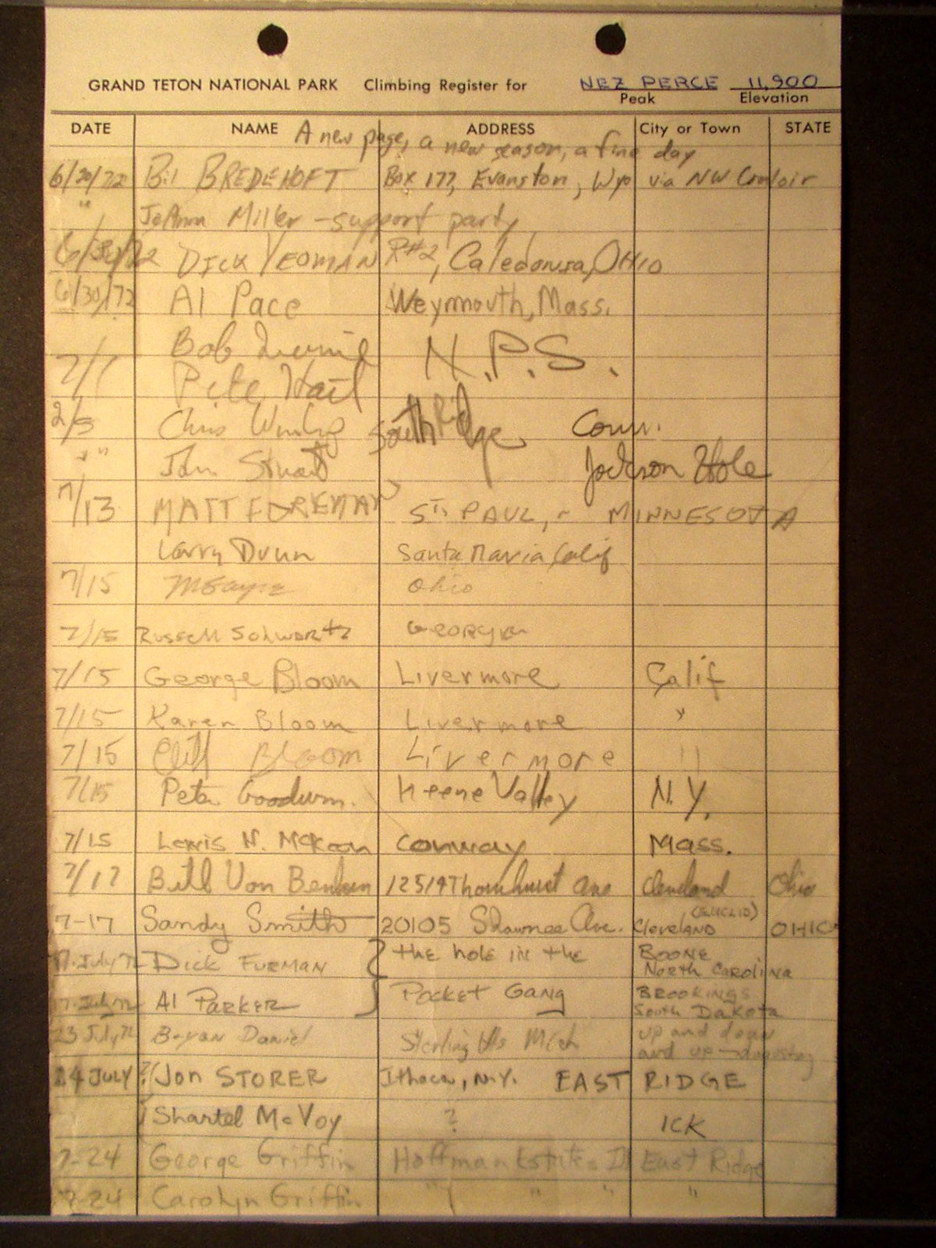 GRAND TETON NATIONAL PARK Climbing Register for NEZ PERCE 11,900
Peak Elevation
DATE NAME ADDRESS City or Town STATE
A new page, a new season, a fine day
6/20/72 Bil BREDEHOFT Box 177, Evanston, Wyo via NW Couloir
" JoAnn Miller - support party
DICK YEOMAN R#2, Caledonia, OHIO
6/30/72 Al Pace Weymouth, Mass.
Bob N.P.S.
7/1 Pete
Chris South Ridge Conn.
" John Stuart Jackson Hole
7/13 MATT FOREMAN ST. PAUL, - MINNESOTA
Larry Dunn Santa Maria Calif
7/15 Ohio
7/15 Russell Schwartz Georgia
7/15 George Bloom Livermore Calif
7/15 Karen Bloom Livermore "
7/15 Cliff Bloom Livermore "
7/15 Pete Goodwin. Keene Valley N.Y.
7/15 Lewis N. McKeon Conway Mass.
7/17 Bill Von Cleveland Ohio
7-17 Sandy Smith 20105 Shawnee Ave. Cleveland (EUCLID) OHIO
17 July 72 DICK FURMAN } the hole in the BOONE
North Carolina
17 July 72 Al PARKER } Pocket Gang BROOKINGS
South Dakota
23 July 72 Bryan Daniel Sterling Hts Mich up and down
and up
24 JULY Jon STORER Ithaca, N.Y. EAST RIDGE
Shartel McVoy ? ICK
7-24 George Griffin Hoffman Estates Ill East Ridge
7-24 Carolyn Griffin " " " "